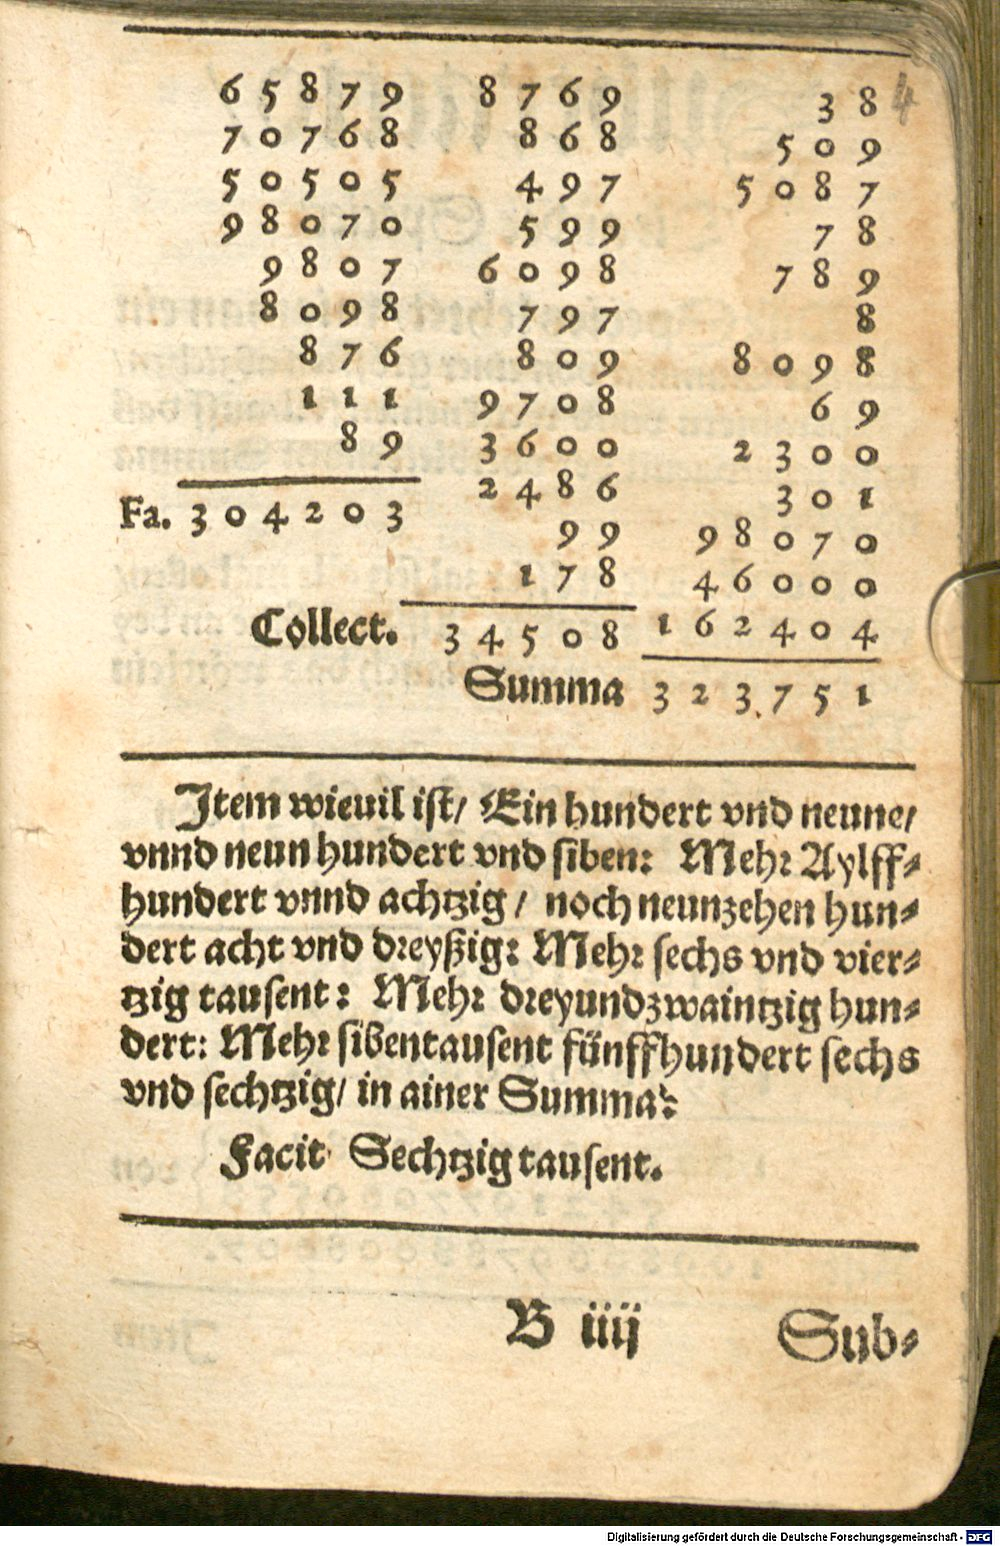 65879 8769 38 4
70768 868 509
50505 497 5087
98070 599 78
9807 6098 789
8098 797 8
876 809 8098
111 9708 69
89 3600 2300
2486 301
Fa. 304203
99 98070
178 46000
162404
Collect. 34508
Summa 323751
Item wieuil ist/ Ein hundert vnd neune/
vnnd neun hundert vnd siben: Mehr Aylff-
hundert vnnd achtzig / noch neunzehen hun-
dert acht vnd dreyßig: Mehr sechs vnd vier-
tzig tausent: Mehr dreyundzwaintzig hun-
dert: Mehr sibentausent fünffhundert sechs
vnd sechtzig/ in ainer Summa:
Facit Sechtzig tausent.
B iiij Sub-
Digitalisierung gefördert durch die Deutsche Forschungsgemeinschaft - DFG